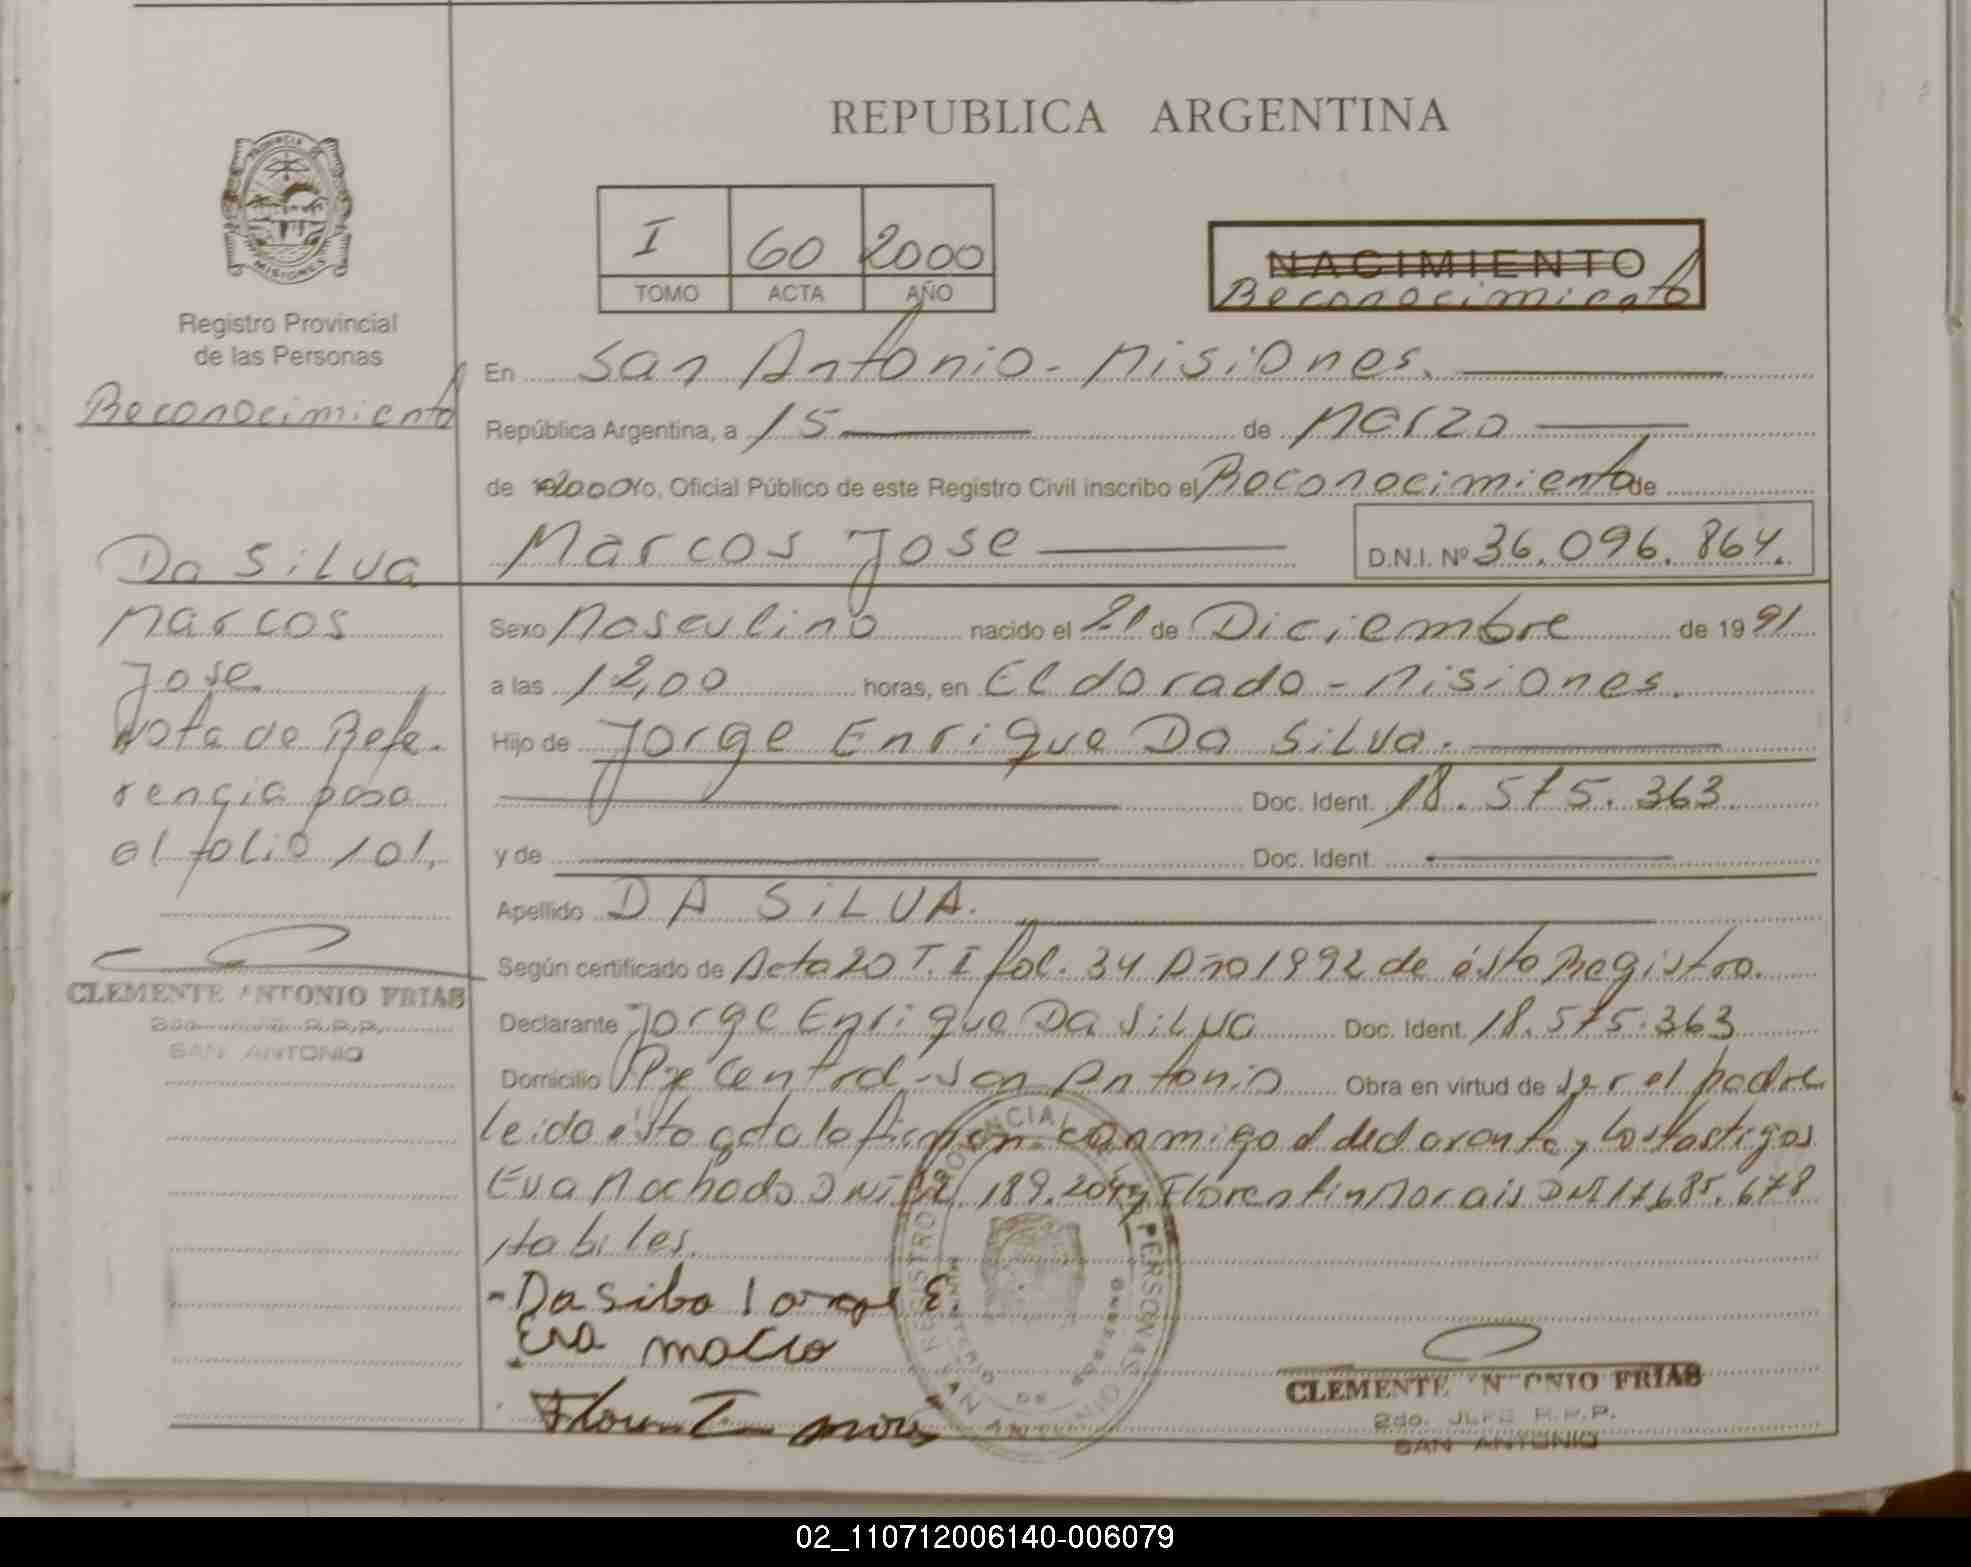 REPUBLICA ARGENTINA
PROVINCIA DE
MISIONES
Registro Provincial
de las Personas
Reconocimiento
Da Silva
Marcos
Jose
Nota de Refe-
rencia pasa
al folio 101.
CLEMENTE ANTONIO FRIAS
SAN ANTONIO
I 60 2000
TOMO ACTA AÑO
NACIMIENTO
Reconocimiento
En San Antonio - Misiones.
República Argentina, a 15 de Marzo
de 2000 Yo, Oficial Público de este Registro Civil inscribo el Reconocimiento de
Marcos Jose D.N.I. Nº 36.096.864.
Sexo Masculino nacido el 21 de Diciembre de 1991
a las 12,00 horas, en Eldorado - Misiones.
Hijo de Jorge Enrique Da Silva.
Doc. Ident. 18.575.363.
y de Doc. Ident.
Apellido DA SILVA.
Según certificado de Acta 20 T. I fol. 34 Año 1992 de ésto Registro.
Declarante Jorge Enrique Da Silva Doc. Ident. 18.575.363
Domicilio Pje Central - San Antonio Obra en virtud de ser el padre
leido ésta acta la firman conmigo el declarante y los testigos
Eva Machado DNI 189.204 y Florentin Morais DNI 17.685.678
Habiles.
- Da Silba Jorge E.
Eva
REGISTRO PROVINCIAL PERSONAS
CLEMENTE ANTONIO FRIAS
2do. JEFE R.P.P.
SAN ANTONIO
02_110712006140-006079